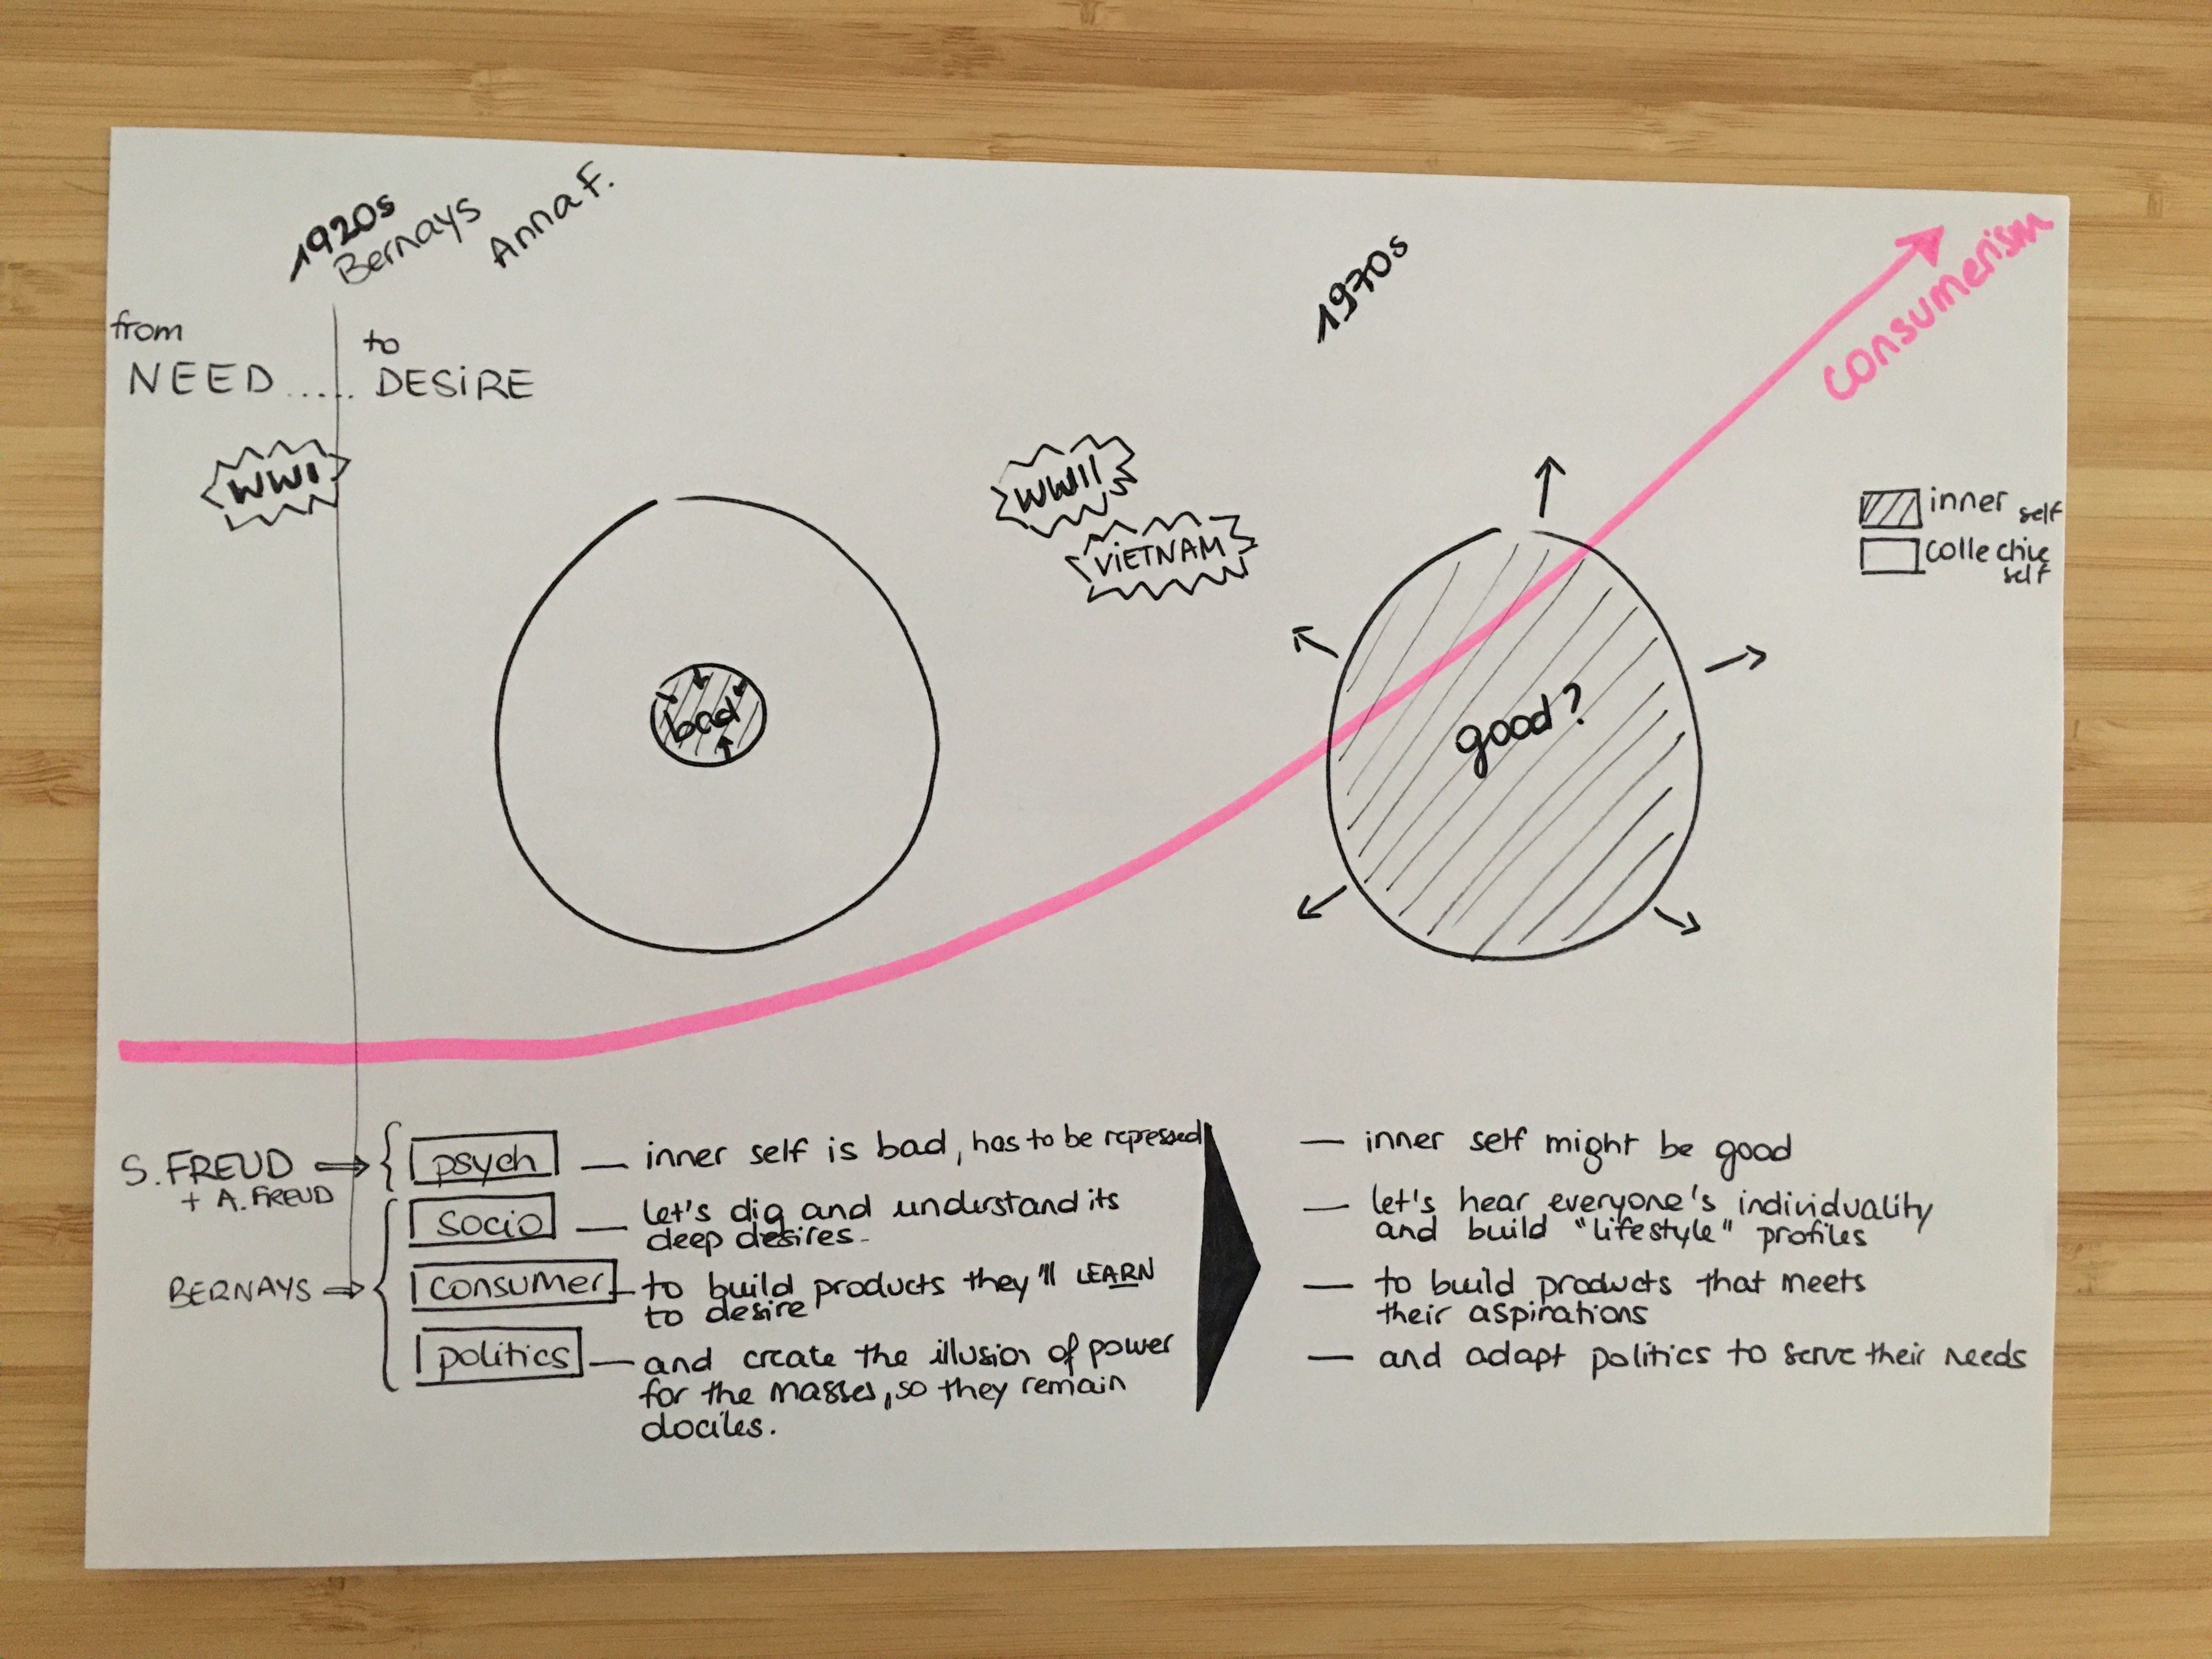 1920s
Bernays
Anna F.
1970s
consumerism
from
NEED.....
to
DESIRE
WWI
WWII
VIETNAM
inner self
collective self
bad
good?
S. FREUD
+ A. FREUD
psych
inner self is bad, has to be repressed
socio
let's dig and understand its
deep desires.
BERNAYS
consumer
to build products they'll LEARN
to desire
politics
and create the illusion of power
for the masses, so they remain
dociles.
inner self might be good
let's hear everyone's individuality
and build "lifestyle" profiles
to build products that meets
their aspirations
and adapt politics to serve their needs